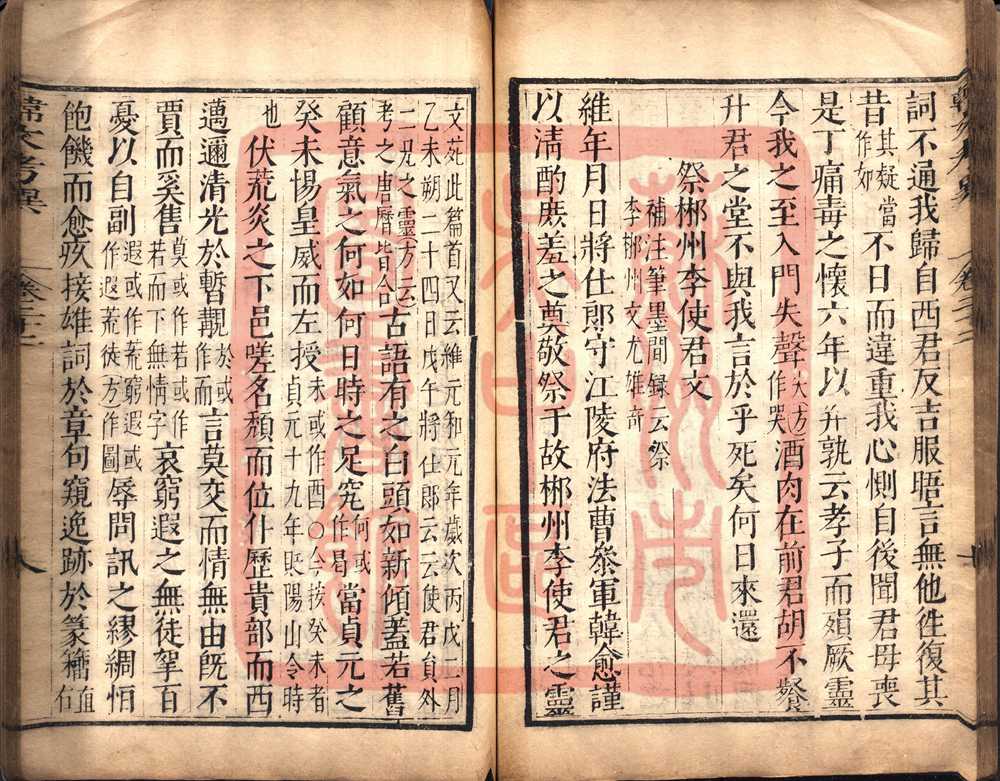 詞不通我歸自西君反吉服晤言無他徃復其
昔其疑當作如不日而違重我心惻自後聞君母喪
是丁痛毒之懷六年以并孰云孝子而殞厥靈
今我之至入門失聲失方作哭酒肉在前君胡不餐
升君之堂不與我言於乎死矣何日來還
祭郴州李使君文
補注筆墨閒録云祭李郴州文尤雄奇
維年月日將仕郎守江陵府法曹叅軍韓愈謹
以清酌庶羞之奠敬祭于故郴州李使君之靈
文苑此篇首又云維元和元年歲次丙戌二月
乙未朔二十四日戊午將仕郎云云使君員外
二兄之靈方云
考之唐曆皆合古語有之白頭如新傾蓋若舊
顧意氣之何如何日時之足究何或作曷當貞元之
癸未惕皇威而左授未或作酉○今按癸未者貞元十九年貶陽山令時
也伏荒炎之下邑嗟名頹而位仆歷貴部而西
邁邇清光於暫覯於或作而言莫交而情無由既不
賈而奚售莫或作若或作若而下無情字哀窮遐之無徒挐百
憂以自副遐或作荒窮遐或作遐荒徒方作圖辱問訊之繆綢恒
飽饑而愈疚接雄詞於章句窺逸跡於篆籀直右
韓文考異
卷二十二
八